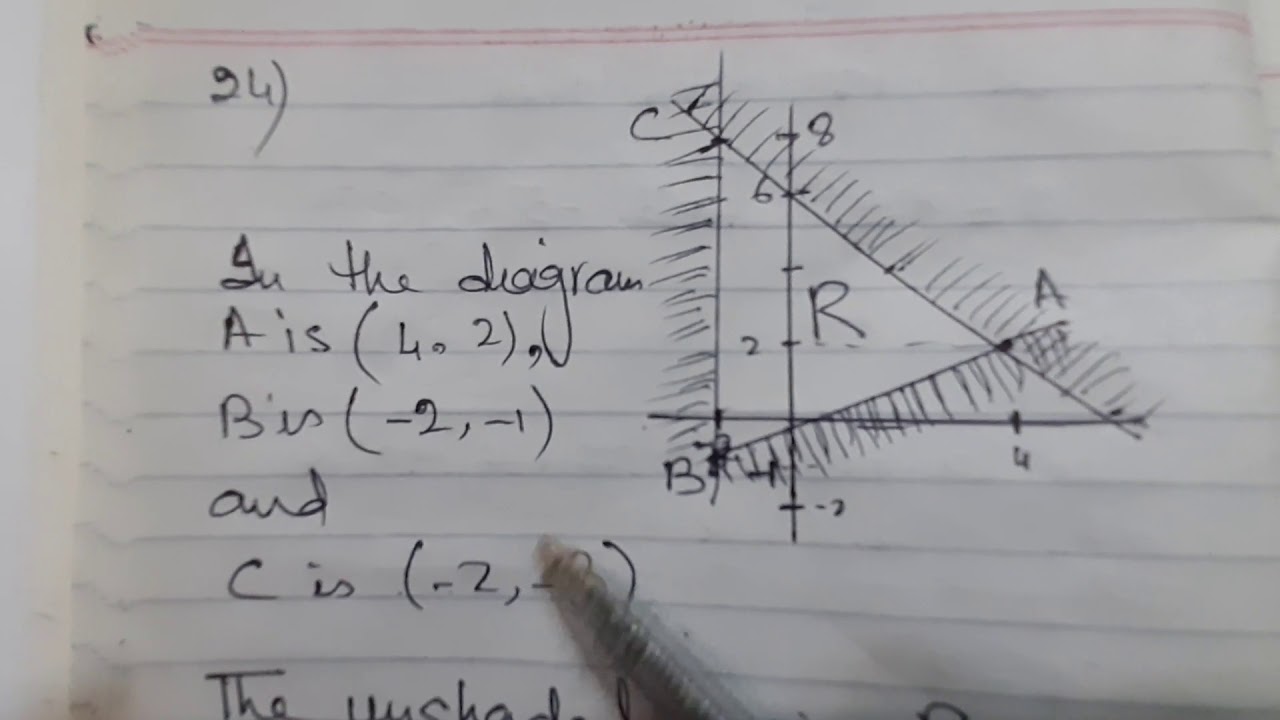 24)
In the diagram
A is (4, 2),
B is (-2, -1)
and
C is (-2, -
The
C
8
6
R
A
2
4
B
-2